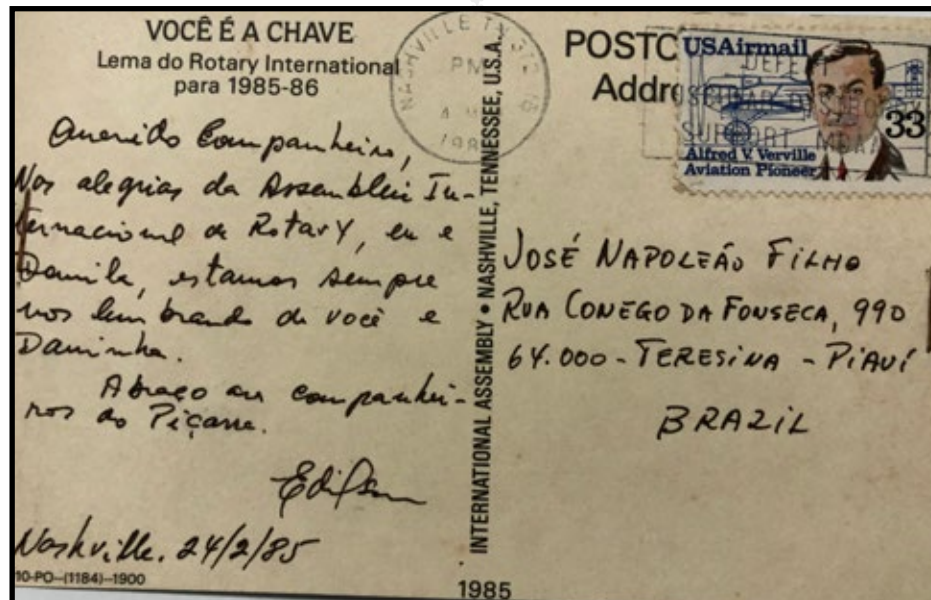 VOCÊ É A CHAVE
Lema do Rotary International
para 1985-86
Querido Companheiro,
Nas alegrias da Assembleia In-
ternacional de Rotary, eu e
Danila, estamos sempre
nos lembrando de você e
Daninha.
Abraço aos companhei-
ros do Piçarra.
Edilson
Nashville. 24/2/85
10-PO-(1184)-1900
INTERNATIONAL ASSEMBLY • NASHVILLE, TENNESSEE, U.S.A.
1985
NASHVILLE TN
PM
POSTC
Addre
USAirmail
33
Alfred V. Verville
Aviation Pioneer
DEFEAT
DYSTROPHY
SUPPORT MDAA
JOSÉ NAPOLEÃO FILHO
RUA CONEGO DA FONSECA, 990
64.000 - TERESINA - PIAUÍ
BRAZIL